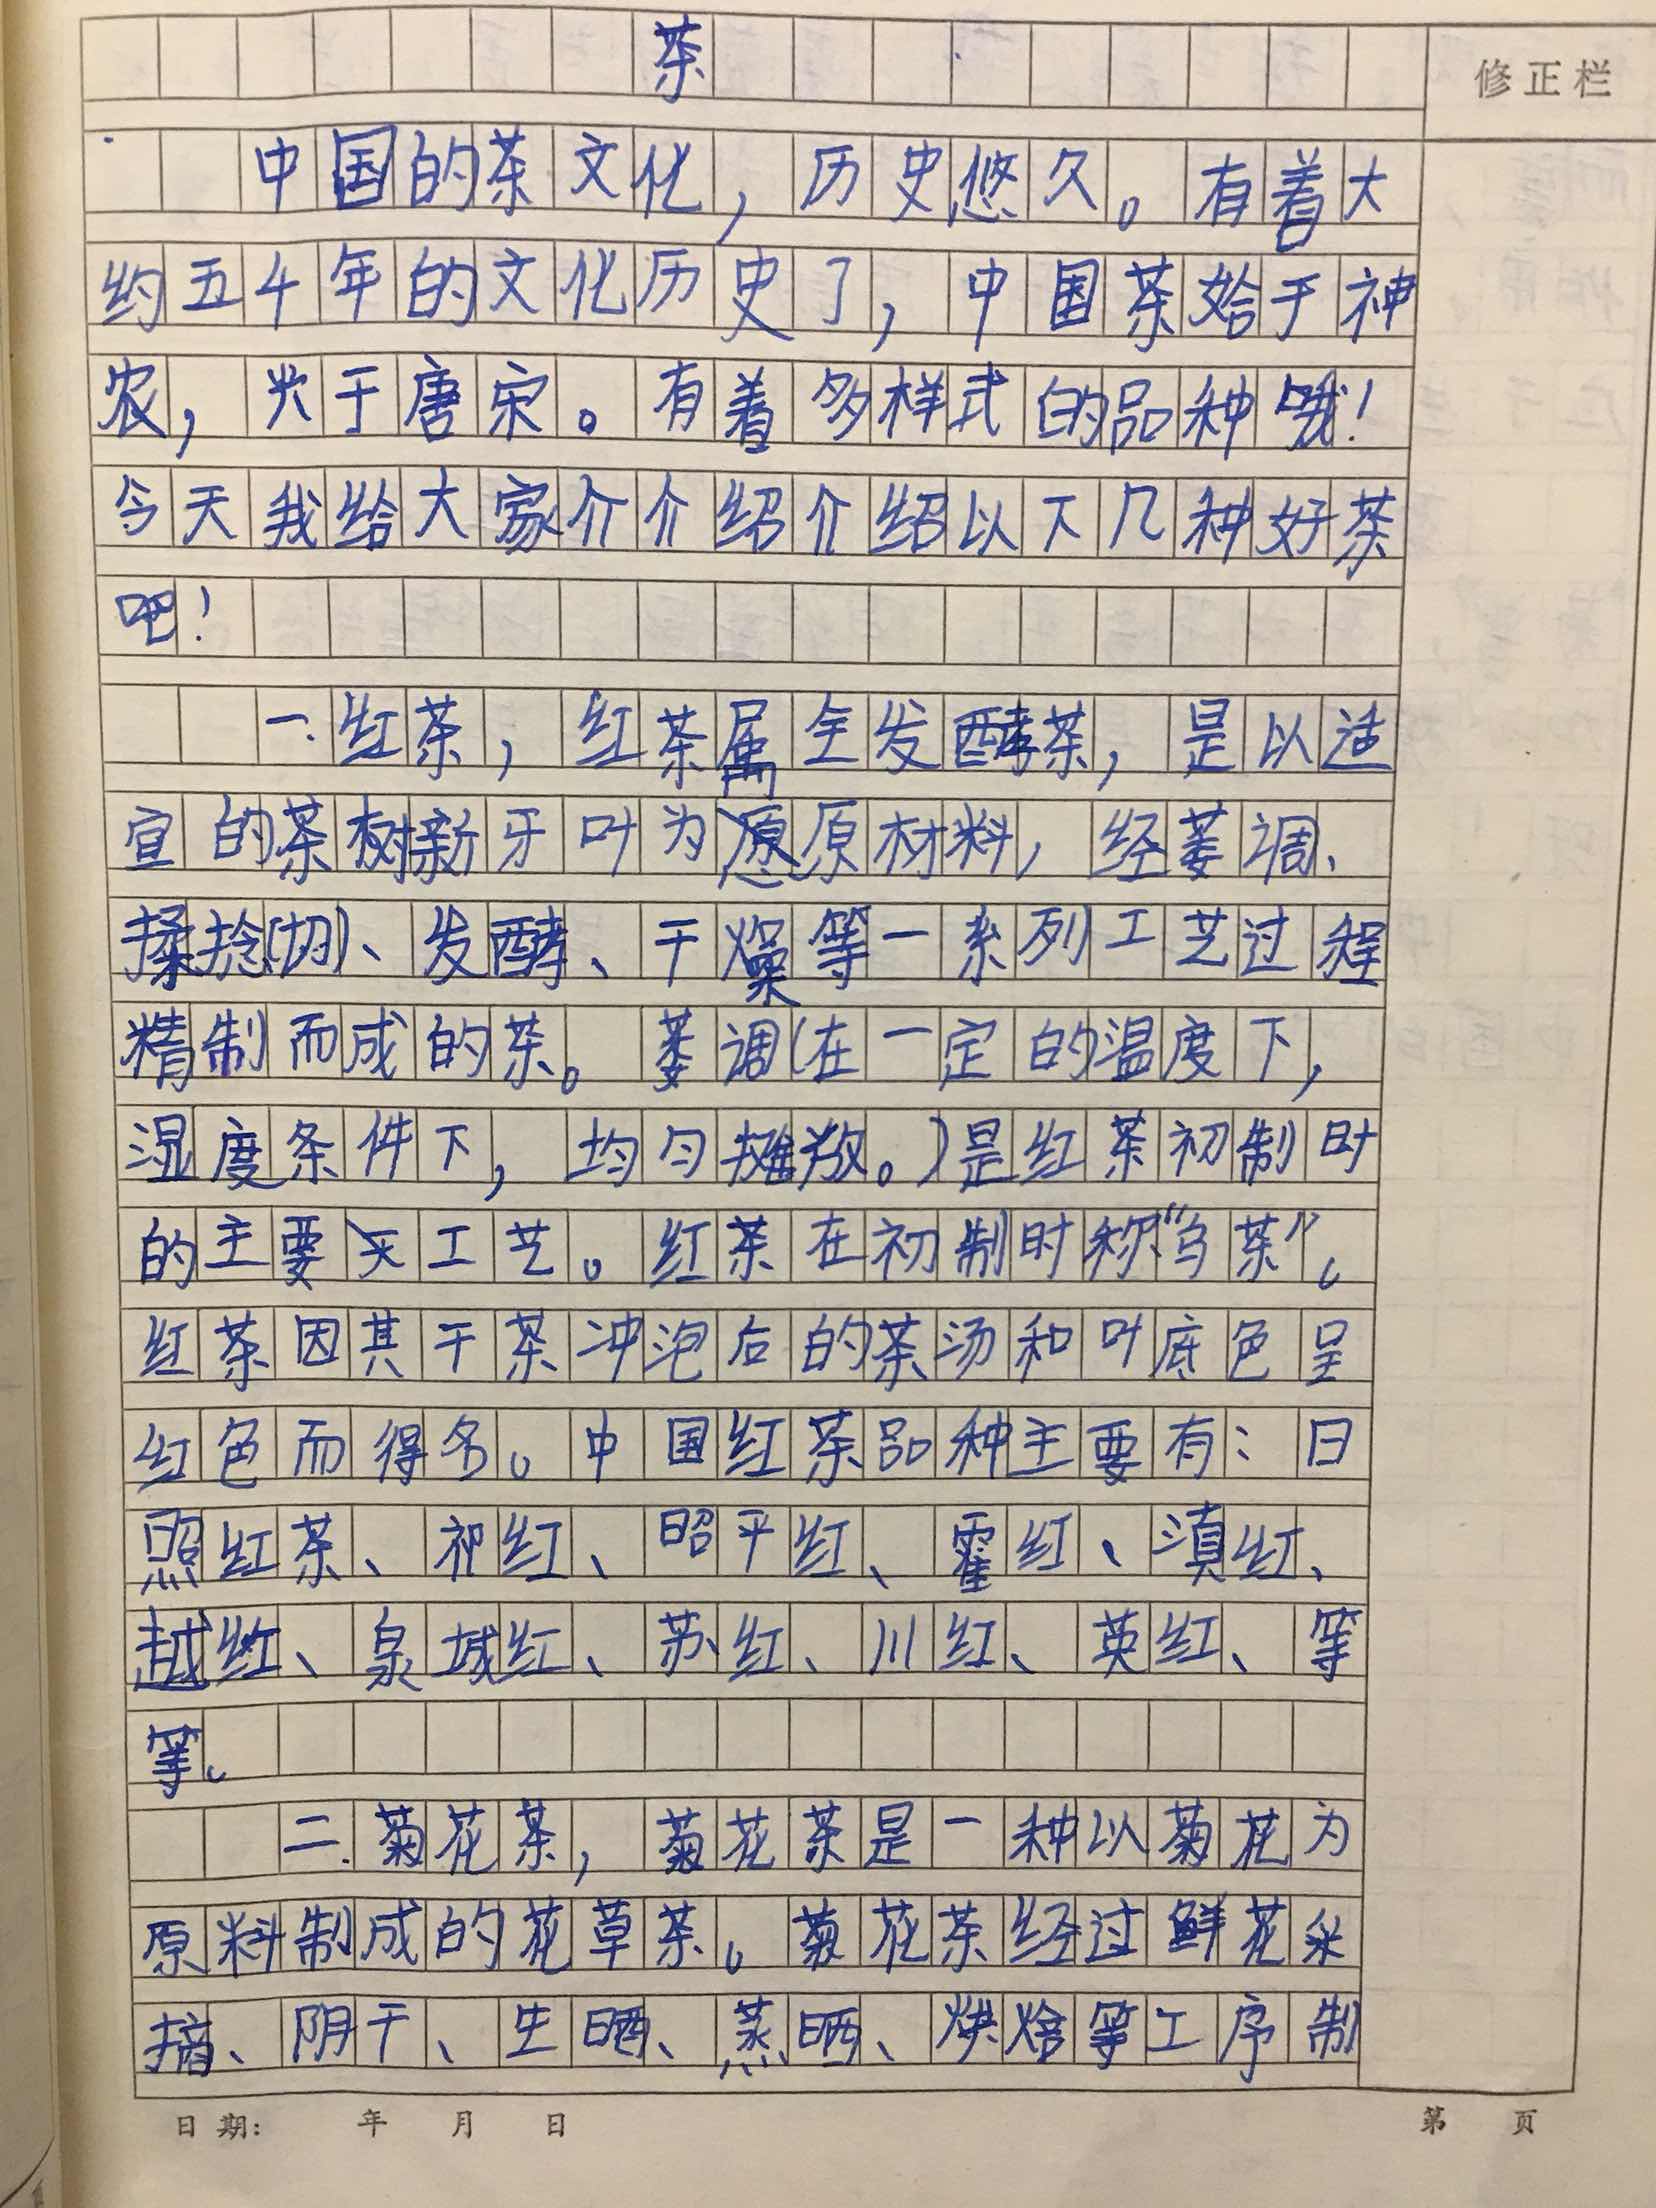 茶
修正栏
中国的茶文化，历史悠久。有着大
约五千年的文化历史了，中国茶始于神
农，兴于唐宋。有着多样式的品种哦！
今天我给大家介介绍介绍以下几种好茶
吧！
一.红茶，红茶属全发酵茶，是以适
宜的茶树新牙叶为原原材料，经萎调、
揉捻(切)、发酵、干燥等一系列工艺过程
精制而成的茶。萎调(在一定的温度下，
湿度条件下，均匀摊放。)是红茶初制时
的主要工艺。红茶在初制时称“乌茶”。
红茶因其干茶冲泡后的茶汤和叶底色呈
红色而得名。中国红茶品种主要有：日
照红茶、祁红、昭平红、霍红、滇红、
越红、泉城红、苏红、川红、英红、等
等。
二.菊花茶，菊花茶是一种以菊花为
原料制成的花草茶。菊花茶经过鲜花采
摘、阴干、生晒、蒸晒、烘焙等工序制
日期： 年 月 日 第 页